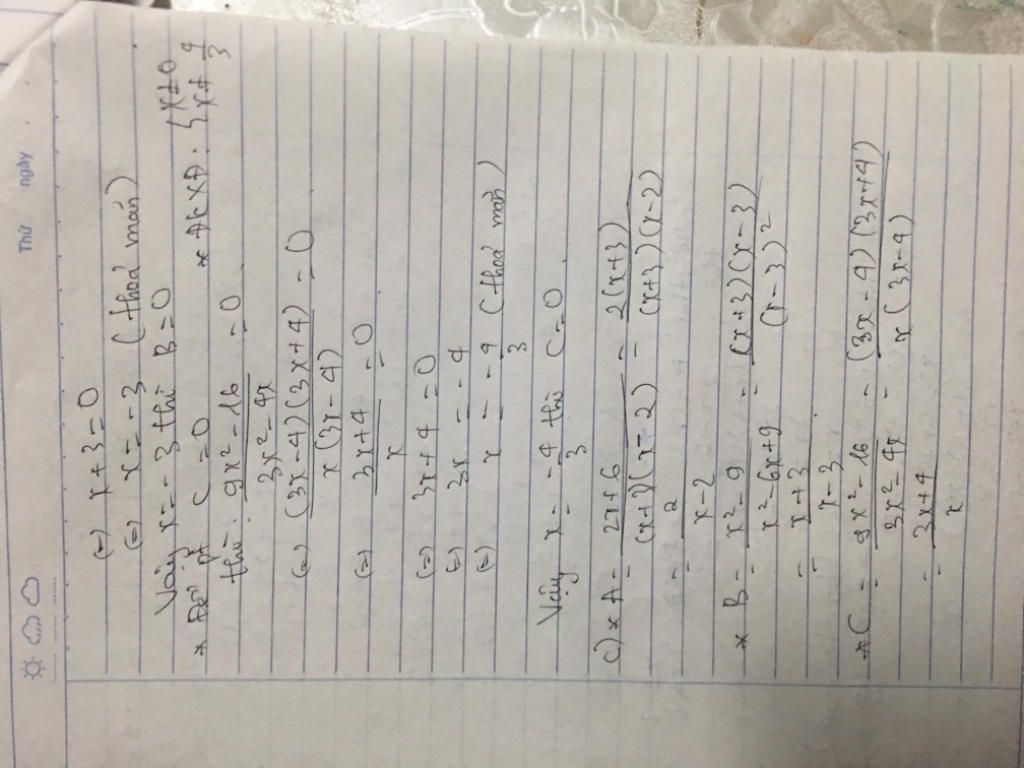 Thứ ngày
(=) x + 3 = 0
(=) x = -3 (thoả mãn)
Vậy x = -3 thì B = 0
* Để C = 0 * ĐKXĐ: { x ≠ 0
x ≠ 4/3
thì: (9x² - 16)/(3x² - 4x) = 0
(=) (3x - 4)(3x + 4)/x(3x - 4) = 0
(=) (3x + 4)/x = 0
(=) 3x + 4 = 0
(=) 3x = -4
(=) x = -4/3 (thoả mãn)
Vậy x = -4/3 thì C = 0
c) * A = (2x + 6)/(x + 3)(x - 2) = 2(x + 3)/(x + 3)(x - 2)
= 2/(x - 2)
* B = (x² - 9)/(x² - 6x + 9) = (x + 3)(x - 3)/(x - 3)²
= (x + 3)/(x - 3)
* C = (9x² - 16)/(3x² - 4x) = (3x - 4)(3x + 4)/x(3x - 4)
= (3x + 4)/x